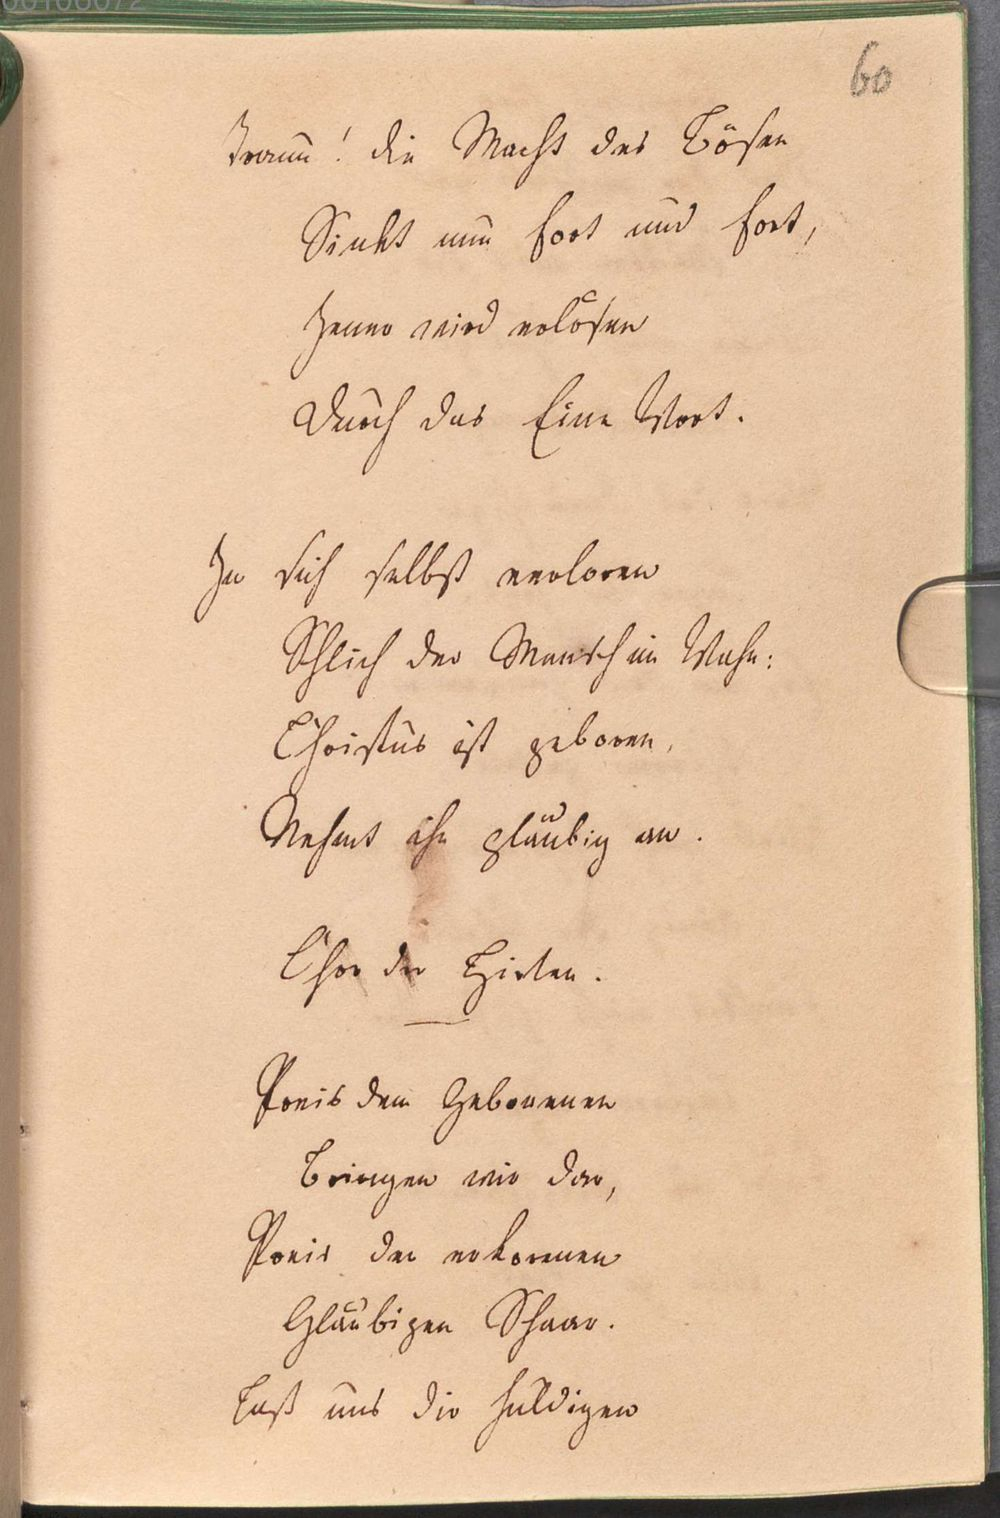 60
Traun! die Macht des Bösen
Sinkt nun fort und fort,
Jener wird erlösen
Durch das Eine Wort.
In sich selbst verloren
Schlich der Mensch im Wahn:
Christus ist geboren,
Nehmt ihn gläubig an.
Chor der Hirten.
Preis dem Geborenen
Bringen wir dar,
Preis der erkorenen
Gläubigen Schaar.
Laß uns dir huldigen